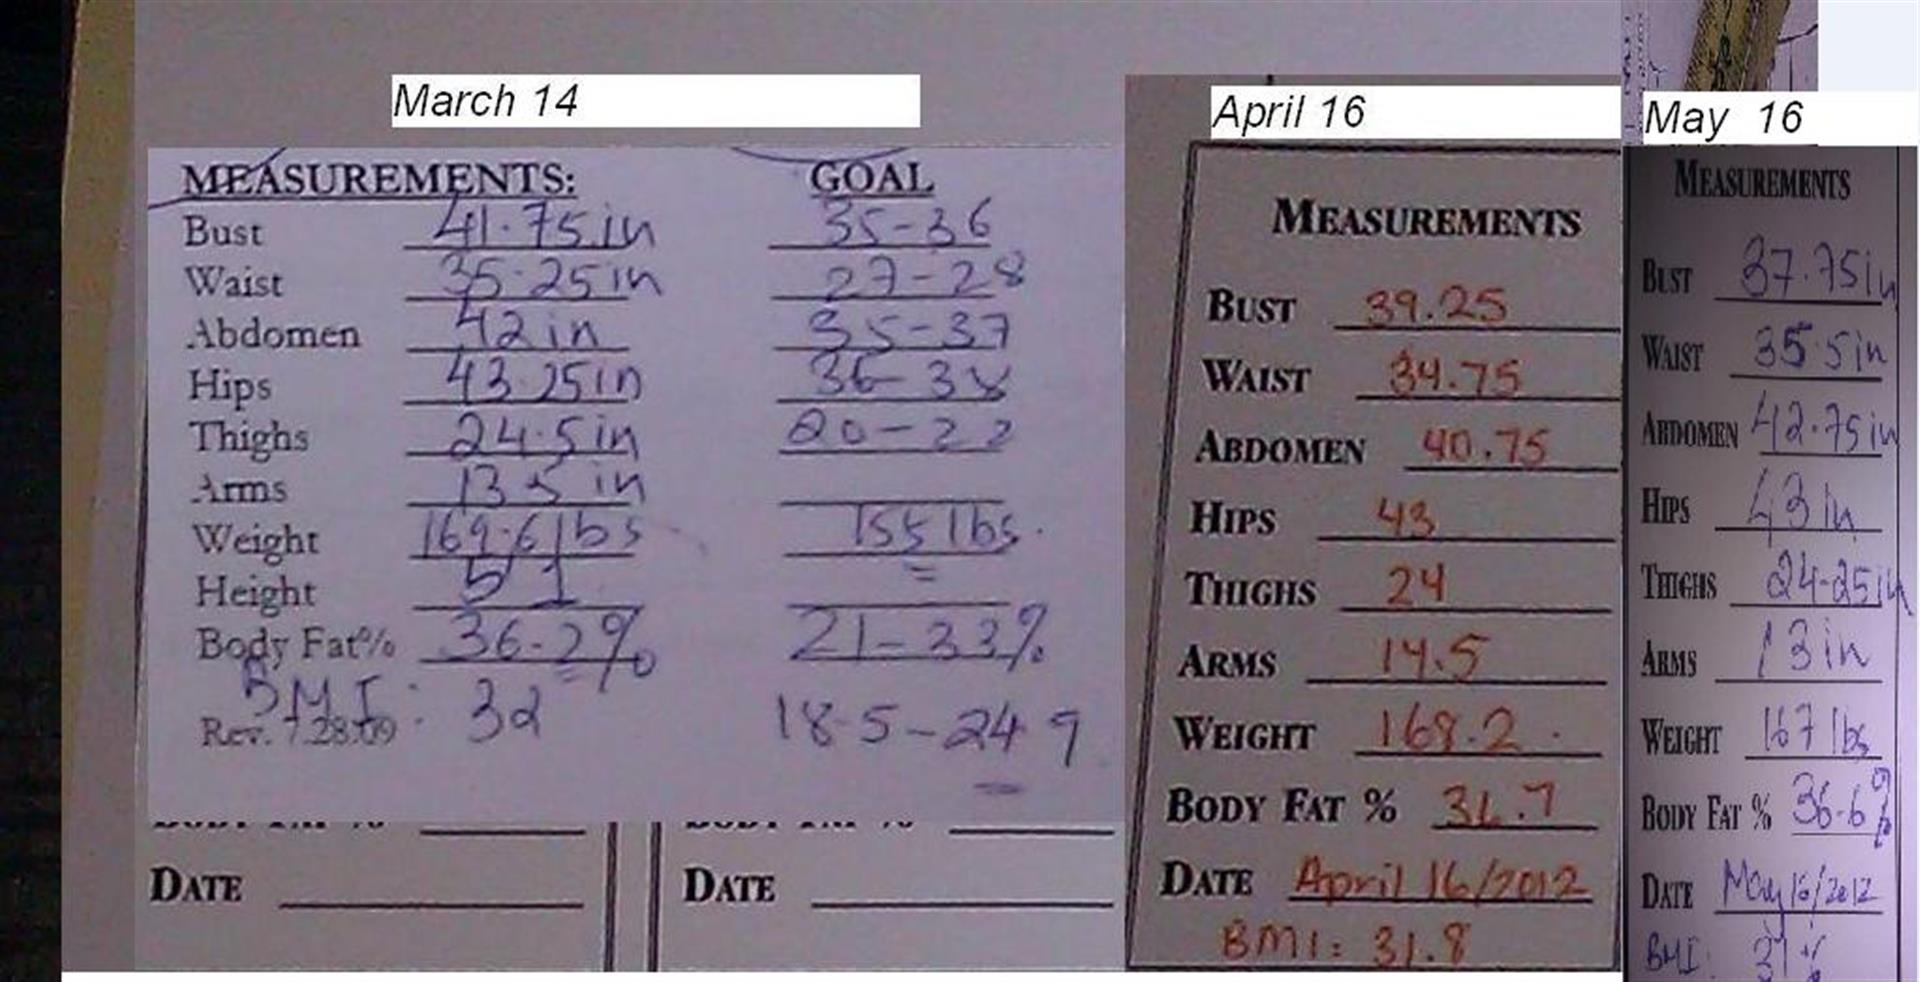 March 14
MEASUREMENTS: GOAL
Bust 41.75 in 35-36
Waist 35.25 in 27-28
Abdomen 42 in 35-37
Hips 43.25 in 36-38
Thighs 24.5 in 20-22
Arms 13.5 in
Weight 169.6 lbs 155 lbs.
Height 5'1
Body Fat% 36.2% 21-33%
BMI: 32 18.5-24.9
Rev. 7.28.09
DATE
DATE
April 16
MEASUREMENTS
BUST 39.25
WAIST 34.75
ABDOMEN 40.75
HIPS 43
THIGHS 24
ARMS 14.5
WEIGHT 168.2
BODY FAT %
DATE April 16/2012
BMI: 31.8
May 16
MEASUREMENTS
BUST 37.75 in
WAIST 35.5 in
ABDOMEN 42.75 in
HIPS 43 in
THIGHS 24.25 in
ARMS 13 in
WEIGHT 167 lbs
BODY FAT % 36.6%
DATE May 16/2012
BMI: